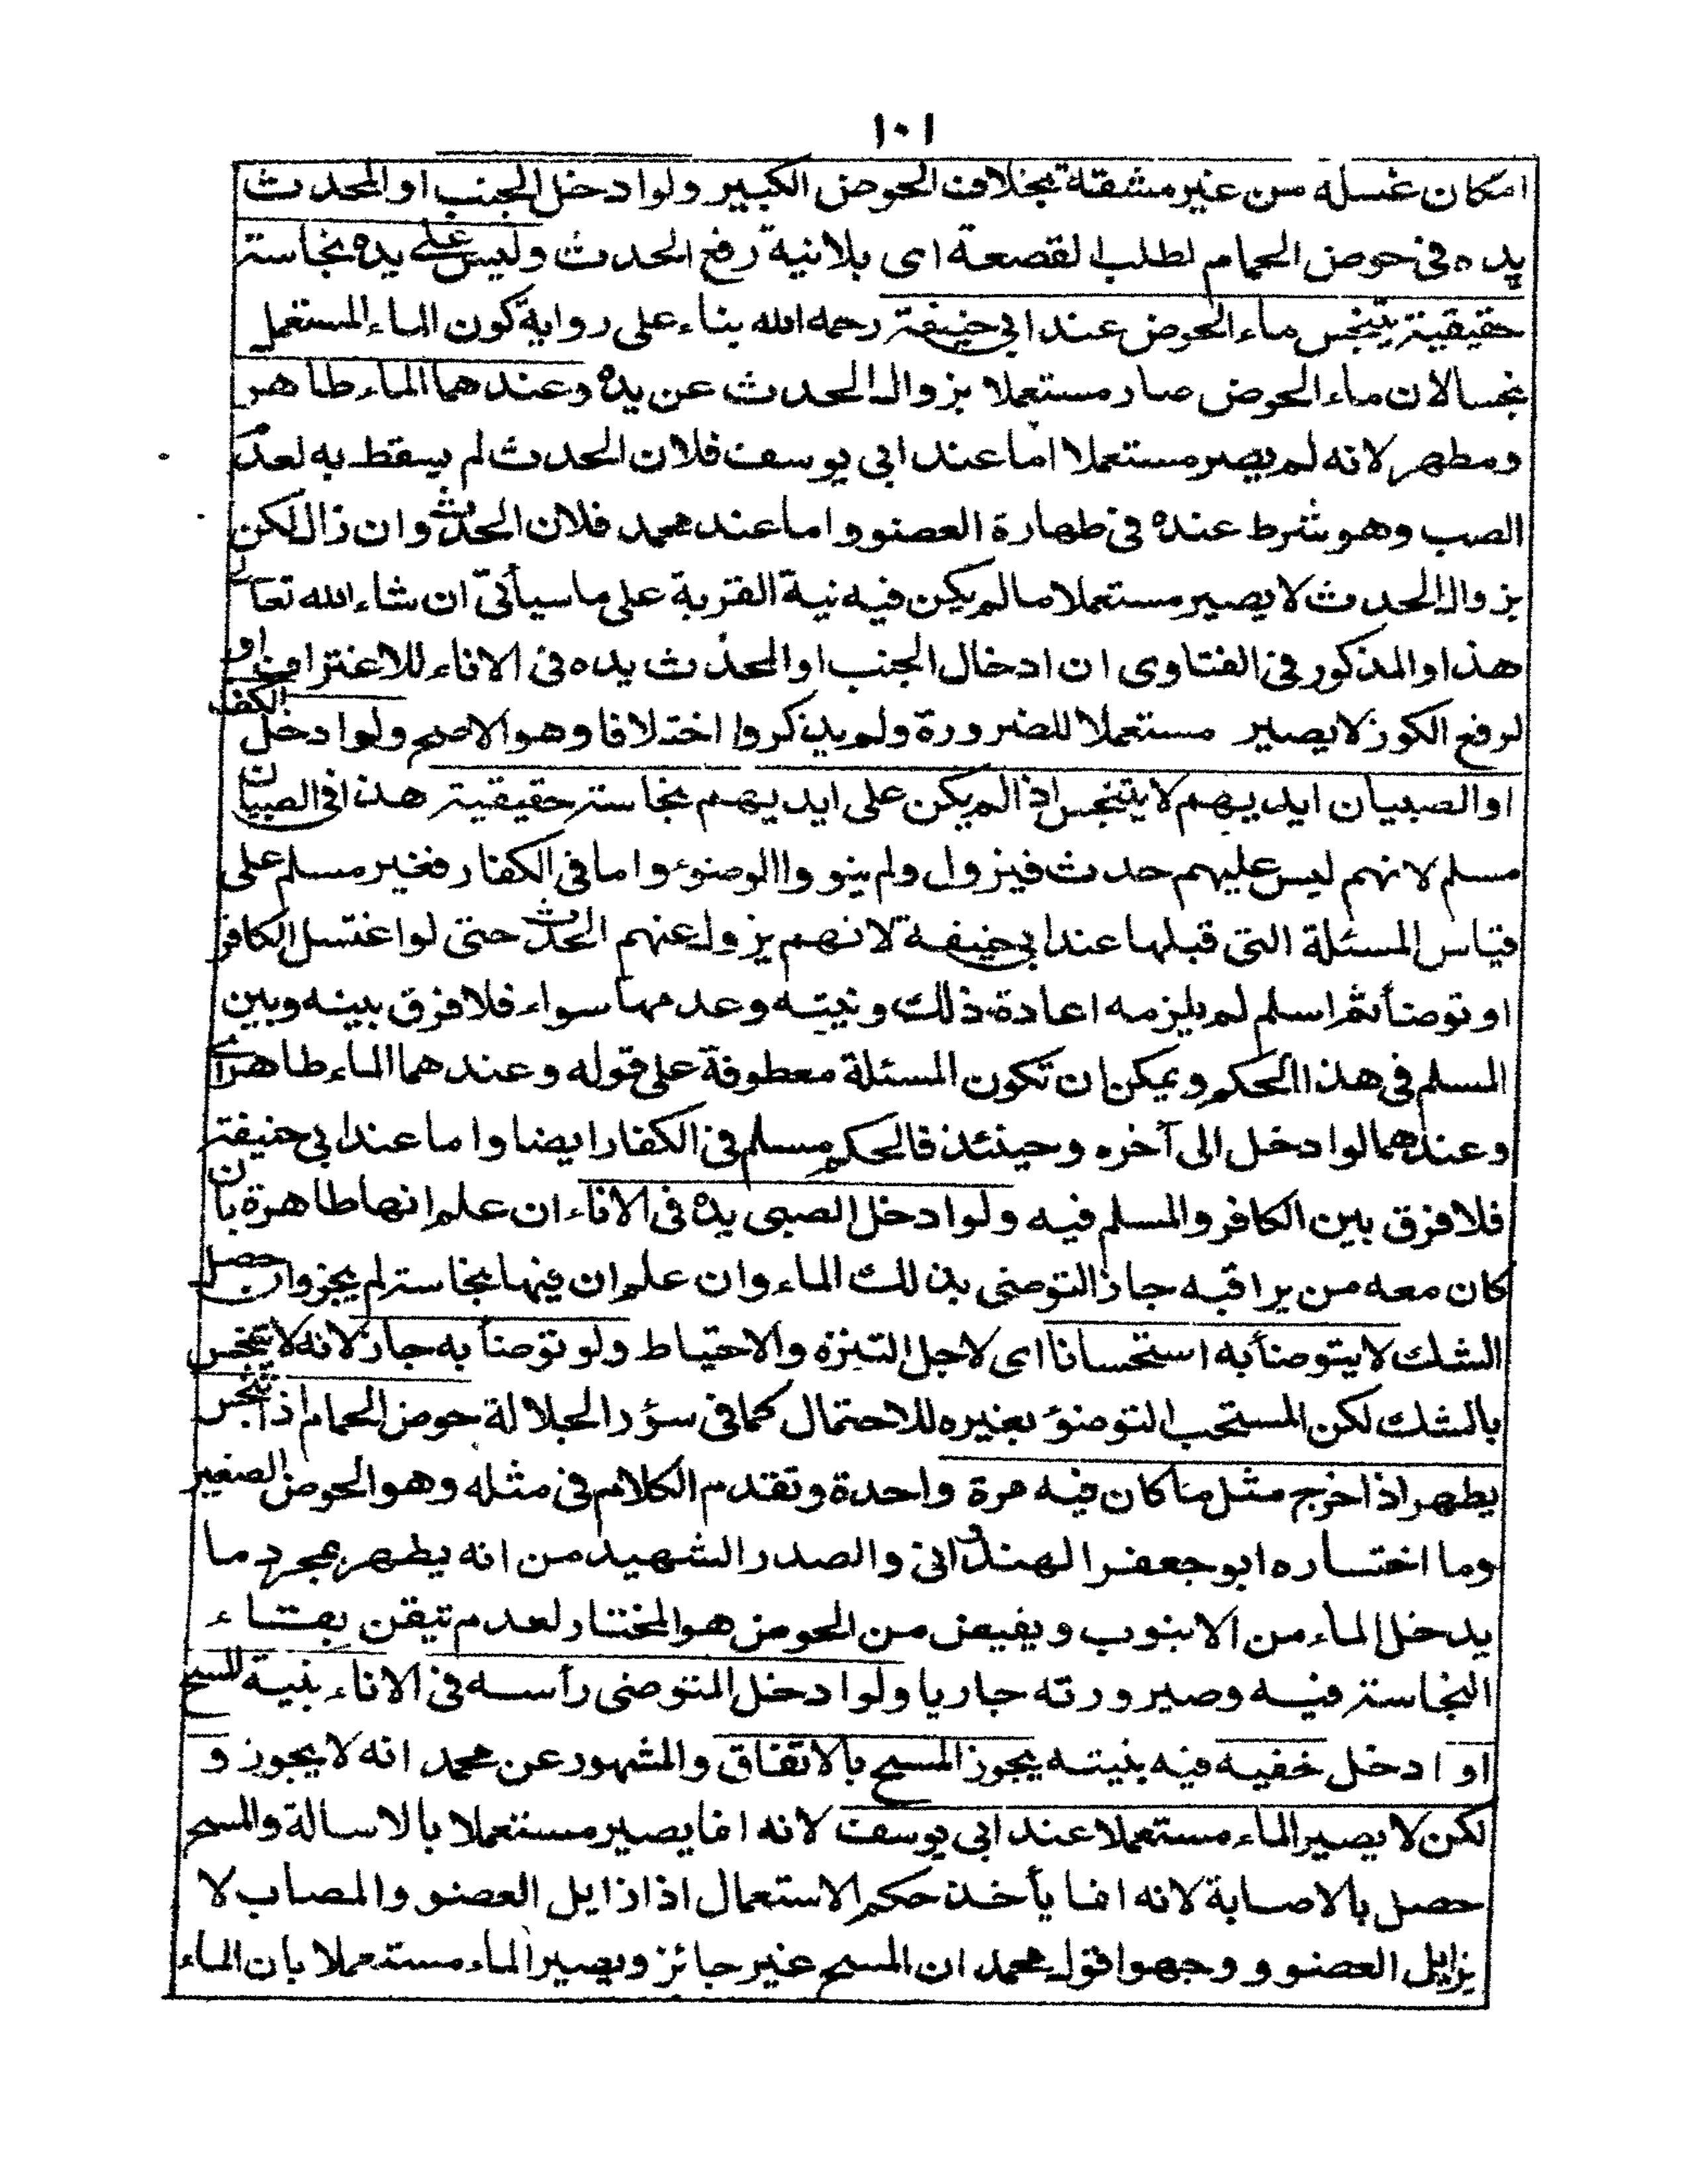 ١٠١
امكان غسله من غير مشقة بخلاف الحوض الكبير ولو ادخل الجنب او المحدث
يده فى حوض الحمام لطلب القصعة اى بلا نية رفع الحدث وليس على يده نجاسة
حقيقية يتنجس ماء الحوض عند ابى حنيفة رحمه الله بناء على رواية كون الماء المستعمل
نجسا لان ماء الحوض صار مستعملا بزوال الحدث عن يده وعندهما الماء طاهر
ومطهر لانه لم يصر مستعملا اما عند ابى يوسف فلان الحدث لم يسقط به لعدم
الصب وهو شرط عنده فى طهارة العضو واما عند محمد فلان الحدث وان زال لكن
بزوال الحدث لا يصير مستعملا ما لم يكن فيه نية القربة على ما سيأتى ان شاء الله تعالى
هذا والمذكور فى الفتاوى ان ادخال الجنب او المحدث يده فى الاناء للاغتراف او
لرفع الكوز لا يصير مستعملا للضرورة ولم يذكروا اختلافا وهو الاصح ولو ادخل الكفار
او الصبيان ايديهم لا يتنجس اذا لم يكن على ايديهم نجاسة حقيقية هذا فى الصبيان
مسلم لانهم ليس عليهم حدث فيزول ولم ينووا الوضوء واما فى الكفار فغير مسلم على
قياس المسئلة التى قبلها عند ابى حنيفة لانهم يزول عنهم الحدث حتى لو اغتسل الكافر
او توضأ ثم اسلم لم يلزمه اعادة ذلك ونيته وعدمها سواء فلا فرق بينه وبين
المسلم فى هذا الحكم ويمكن ان تكون المسئلة معطوفة على قوله وعندهما الماء طاهر اى
وعندهما لو ادخل الى آخره وحينئذ فالحكم مسلم فى الكفار ايضا واما عند ابى حنيفة
فلا فرق بين الكافر والمسلم فيه ولو ادخل الصبى يده فى الاناء ان علم انها طاهرة بان
كان معه من يراقبه جاز التوضى بذلك الماء وان علم ان فيها نجاسة لم يجز وان حصل
الشك لا يتوضأ به استحسانا اى لاجل التنزه والاحتياط ولو توضأ به جاز لانه لا يتنجس
بالشك لكن المستحب التوضؤ بغيره للاحتمال كما فى سؤر الجلالة حوض الحمام اذا تنجس
يطهر اذا اخرج مثل ما كان فيه مرة واحدة وتقدم الكلام فى مثله وهو الحوض الصغير
وما اختاره ابو جعفر الهندوانى والصدر الشهيد من انه يطهر بمجرد ما
يدخل الماء من الانبوب ويفيض من الحوض هو المختار لعدم تيقن بقاء
النجاسة فيه وصيرورته جاريا ولو ادخل المتوضى رأسه فى الاناء بنية المسح
او ادخل خفيه فيه بنيته يجوز المسح بالاتفاق والمشهور عن محمد انه لا يجوز و
لكن لا يصير الماء مستعملا عند ابى يوسف لانه انما يصير مستعملا بالاسالة والمسح
حصل بالاصابة لانه انما يأخذ حكم الاستعمال اذا زايل العضو والمصاب لا
يزايل العضو و وجهوا قول محمد ان المسح غير جائز ويصير الماء مستعملا بان الماء